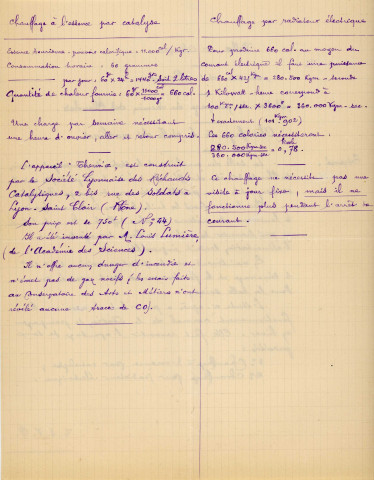 Chauffage à l'essence par catalyse
Essence tourisme - pouvoir calorifique : 11000 cal / Kgr.
Consommation horaire : 60 grammes
par jour : 60 gr x 24 h = 1440 gr soit 2 litres
Quantité de chaleur fournie : 60 gr x 11000 cal / 1000 gr = 660 cal.
Une charge par semaine nécessitant
une heure d'ouvrier, aller et retour compris.
L'appareil "Thermix" est construit
par la Société Lyonnaise des Réchauds
Catalytiques, 2 bis rue des Soldats à
Lyon - Saint Clair (Rhône).
Son prix est de 750 f
Il a été inventé par Mr Louis Lumière,
(de l'Académie des Sciences).
Il n'offre aucun danger d'incendie et
n'émet pas de gaz nocifs (les essais faits
au Conservatoire des Arts et Métiers n'ont
révélé aucune trace de CO).
Chauffage par radiateur électrique
Pour produire 660 cal. au moyen du
courant électrique il faut une puissance
de 660 cal x 425 = 280.500 Kgm - seconde
1 Kilowatt - heure correspond à
x 3600 s = 360.000 Kgm - sec.
Ces 660 calories nécessiteront :
280.500 Kgm-sec / 360.000 Kgm-sec = 0,78
Ce chauffage ne nécessite pas une
visite à jour fixe, mais il ne
fonctionne plus pendant l'arrêt du
courant.